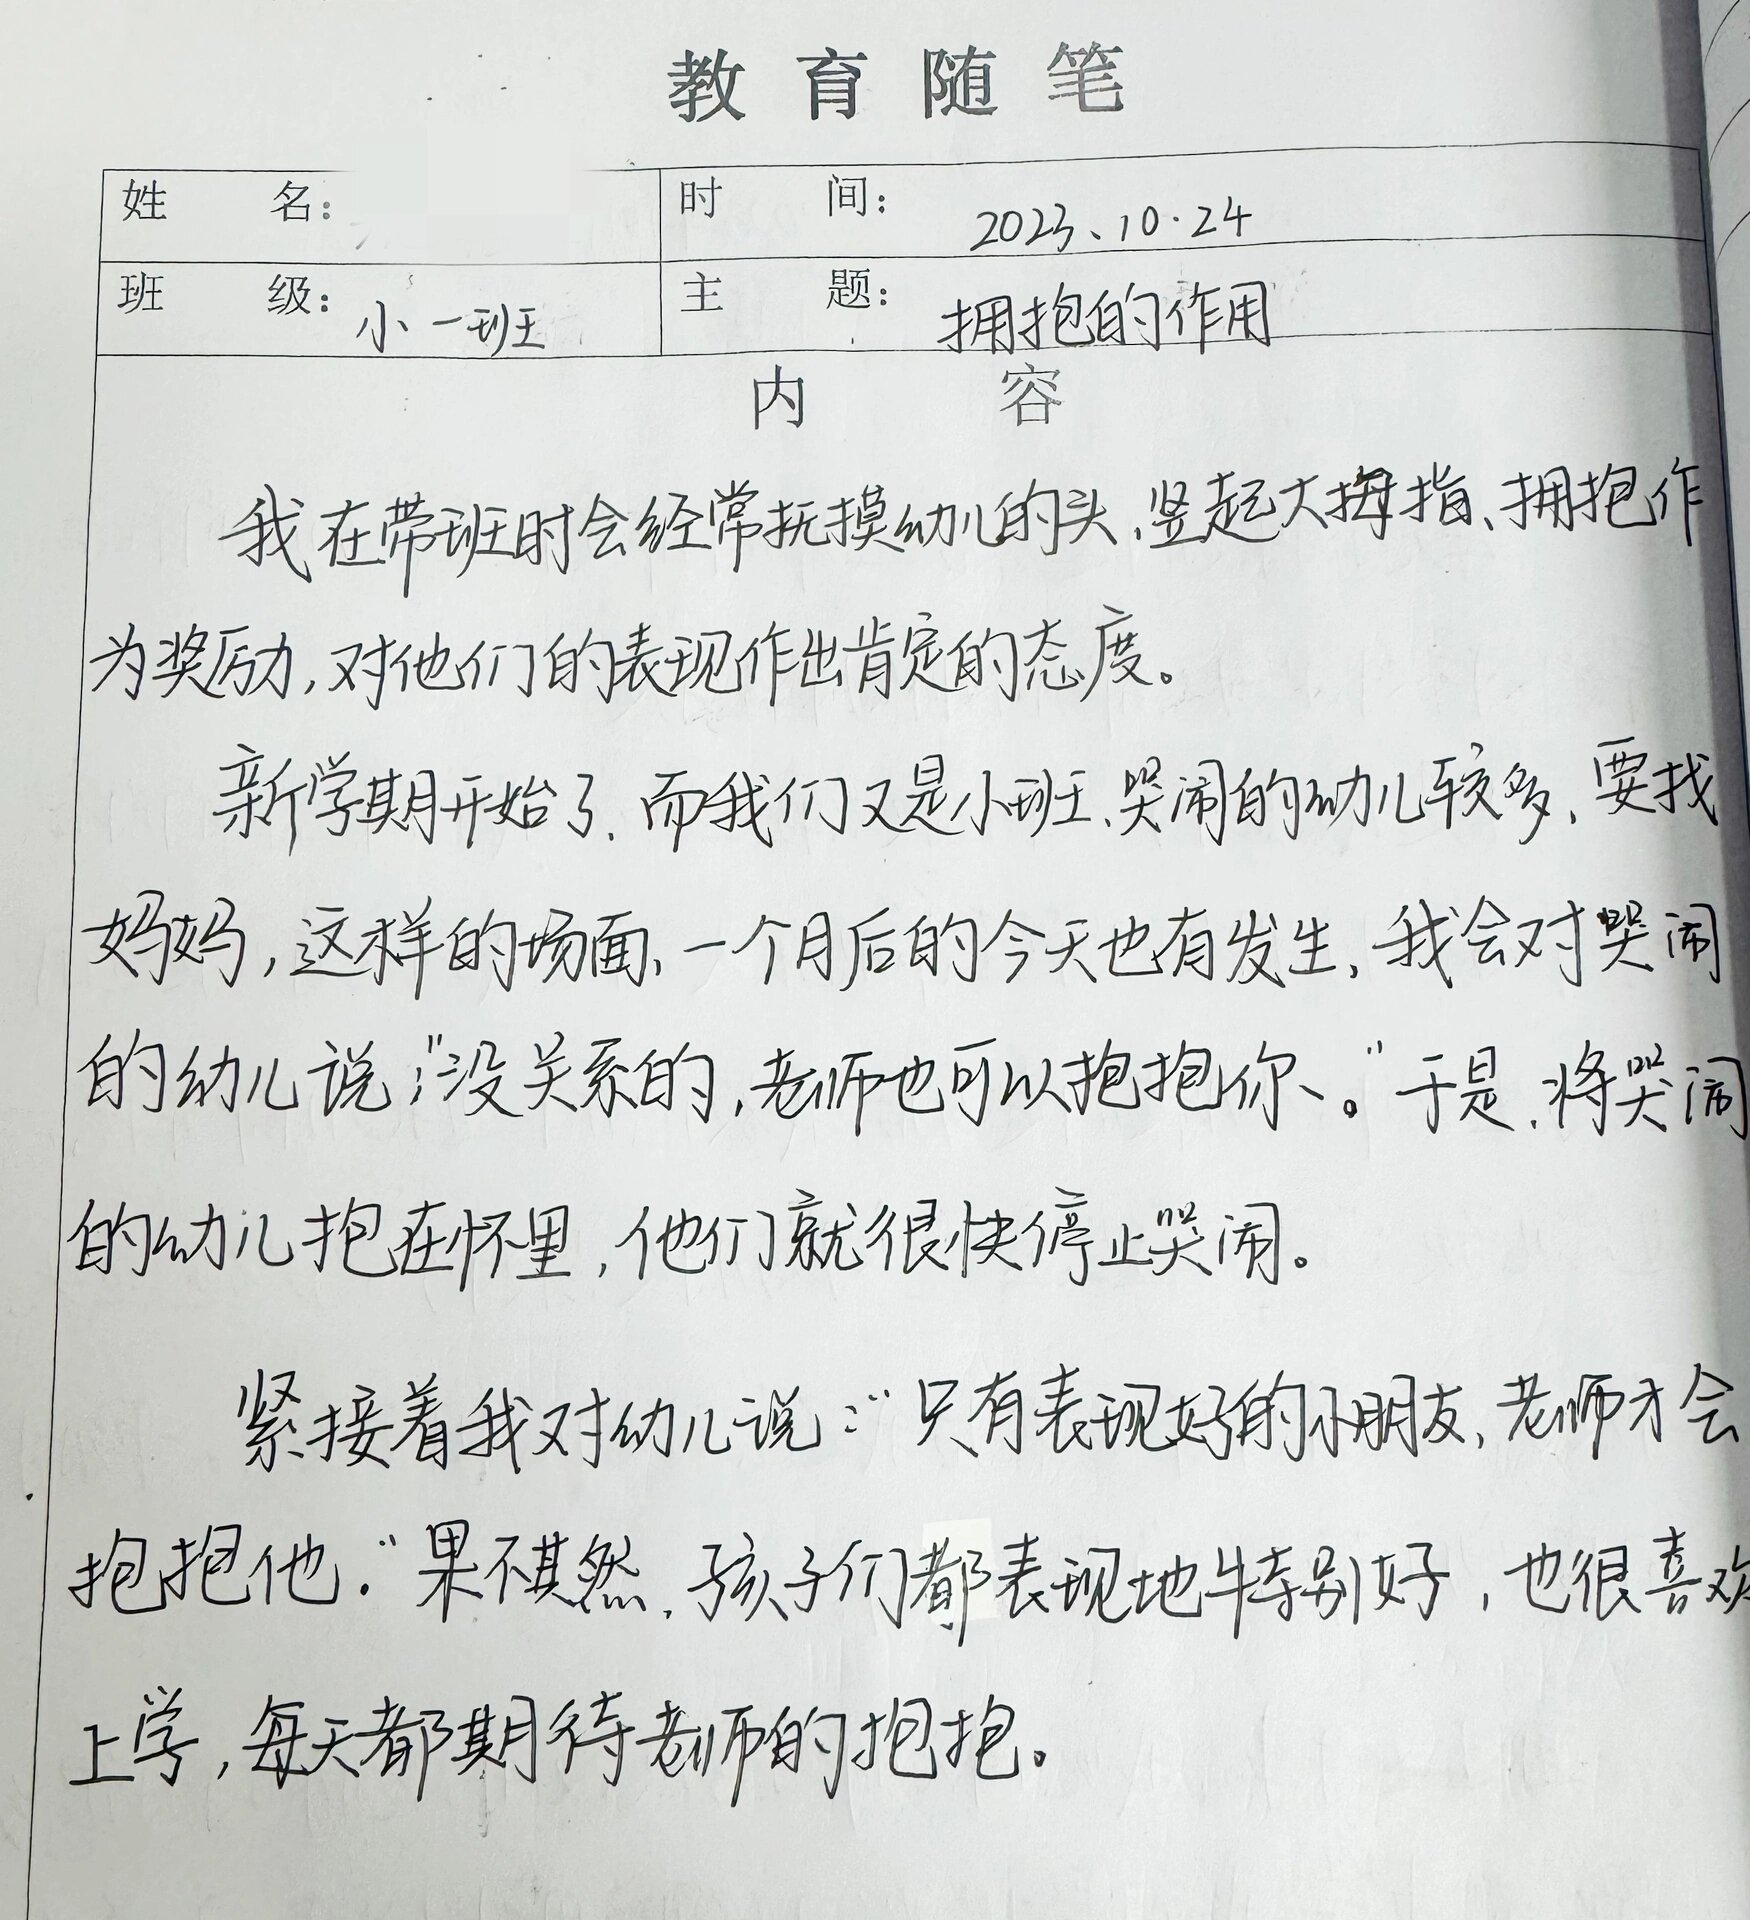 教育随笔
姓名： 时间：2023、10.24
班级：小一班 主题：拥抱的作用
内容
我在带班时会经常抚摸幼儿的头、竖起大拇指、拥抱作
为奖励，对他们的表现作出肯定的态度。
新学期开始了，而我们又是小班、哭闹的幼儿较多，要找
妈妈，这样的场面，一个月后的今天也有发生，我会对哭闹
的幼儿说：“没关系的，老师也可以抱抱你、。”于是，将哭闹
的幼儿抱在怀里，他们就很快停止哭闹。
紧接着我对幼儿说：“只有表现好的小朋友，老师才会
抱抱他。”果不其然，孩子们都表现地特别好，也很喜欢
上学，每天都期待老师的抱抱。